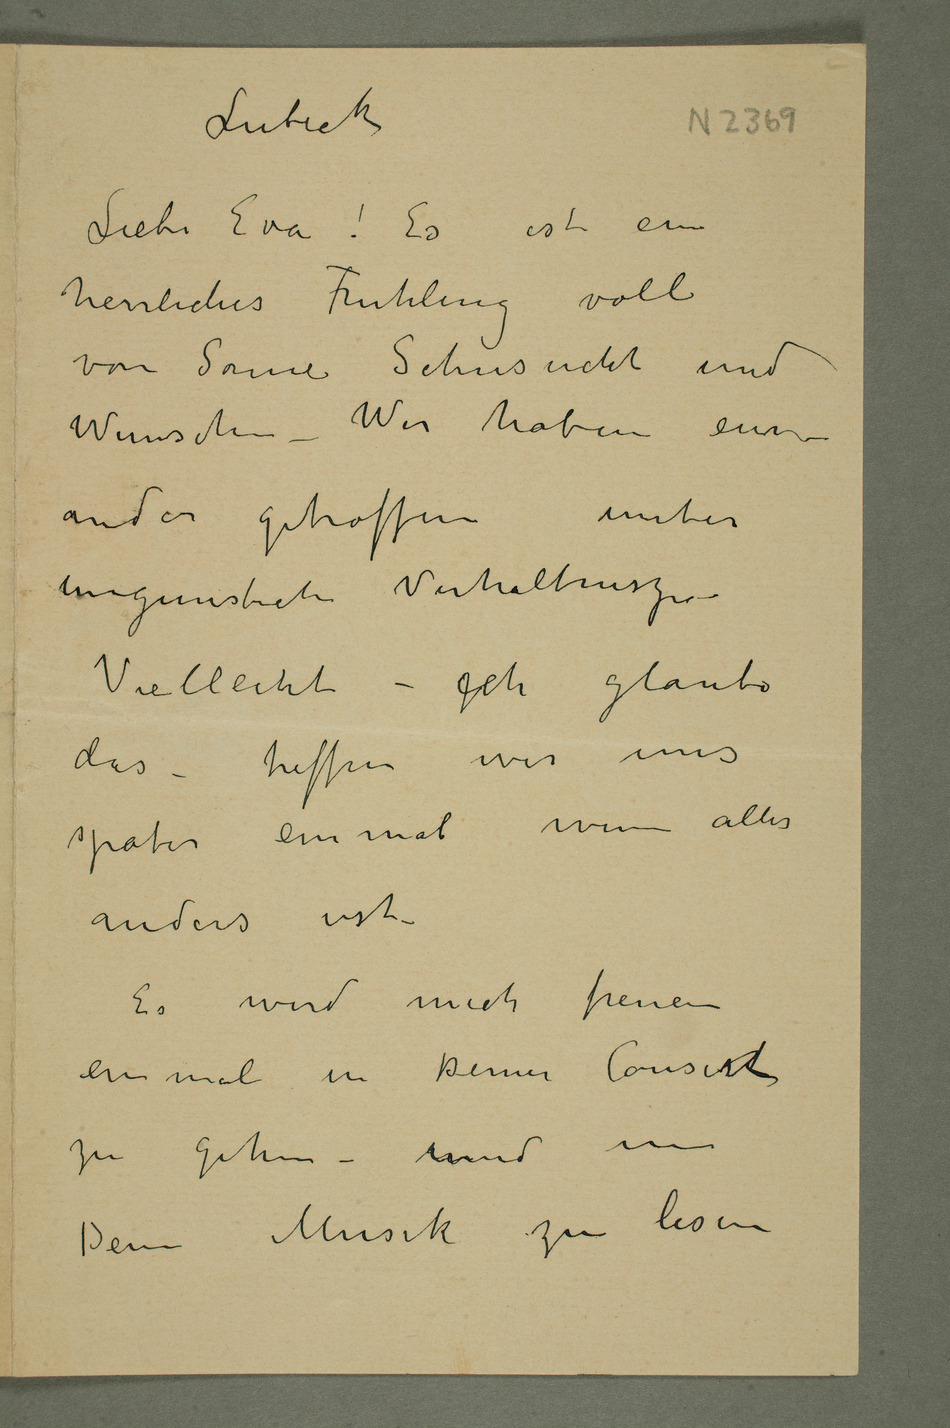 Lubeck
N 2369
Liebe Eva! Es ist ein
herrliches Fruhling voll
von Sonne Sehnsucht und
Wunschen – Wir haben ein
ander getroffen unter
ungunstiche Verhaltnisze –
Vielleicht – ich glaube
das – treffen wir uns
spater einmal wenn alles
anders ist –
Es wird mich freuen
einmal in Deiner Consert
zu gehen – und in
Dein Musik zu lesen